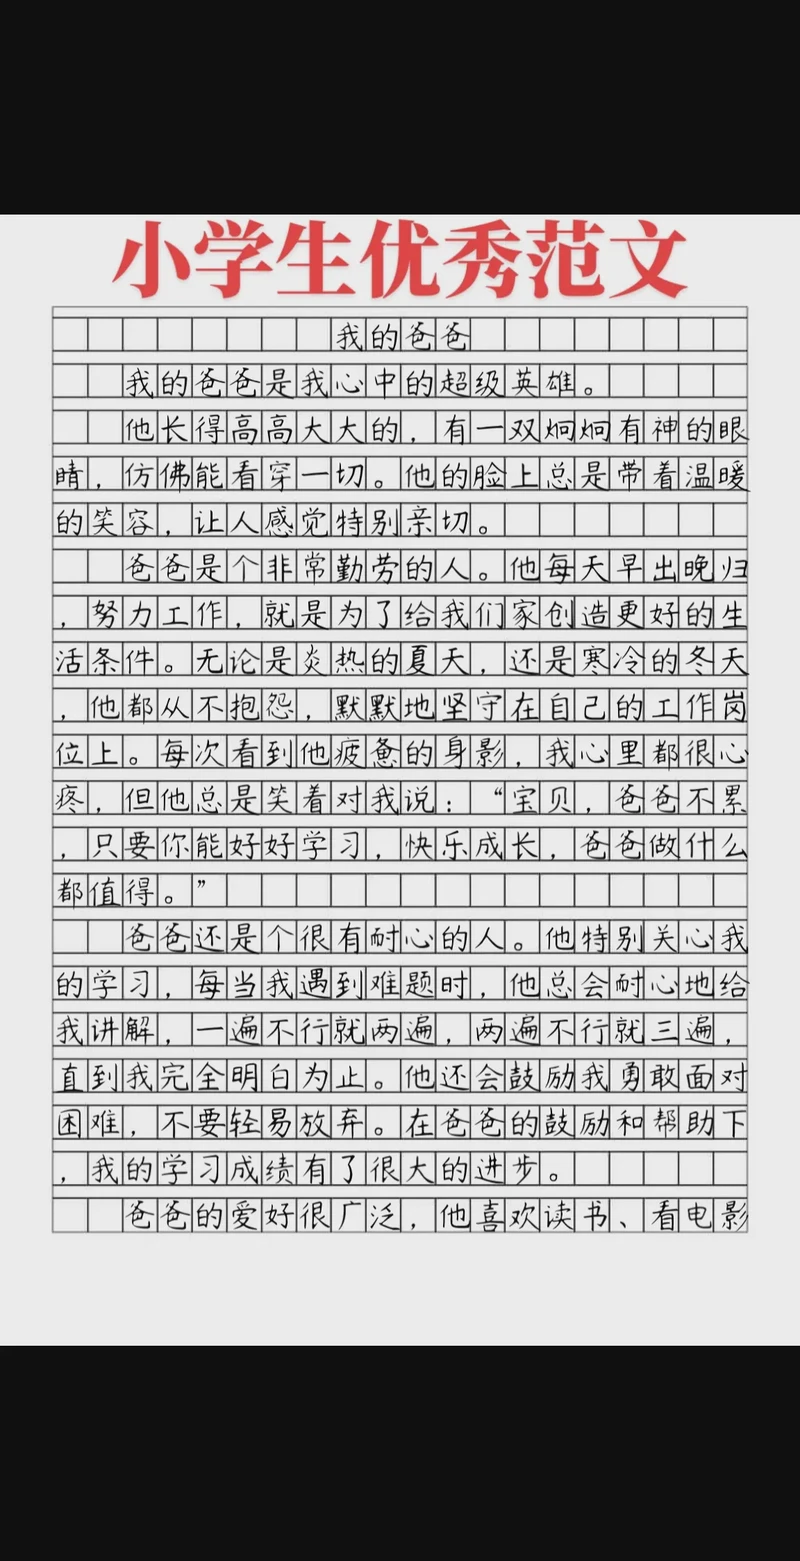 小学生优秀范文
我的爸爸
我的爸爸是我心中的超级英雄。
他长得高高大大的，有一双炯炯有神的眼
睛，仿佛能看穿一切。他的脸上总是带着温暖
的笑容，让人感觉特别亲切。
爸爸是个非常勤劳的人。他每天早出晚归
，努力工作，就是为了给我们家创造更好的生
活条件。无论是炎热的夏天，还是寒冷的冬天
，他都从不抱怨，默默地坚守在自己的工作岗
位上。每次看到他疲惫的身影，我心里都很心
疼，但他总是笑着对我说：“宝贝，爸爸不累
，只要你能好好学习，快乐成长，爸爸做什么
都值得。”
爸爸还是个很有耐心的人。他特别关心我
的学习，每当我遇到难题时，他总会耐心地给
我讲解，一遍不行就两遍，两遍不行就三遍，
直到我完全明白为止。他还会鼓励我勇敢面对
困难，不要轻易放弃。在爸爸的鼓励和帮助下
，我的学习成绩有了很大的进步。
爸爸的爱好很广泛，他喜欢读书、看电影